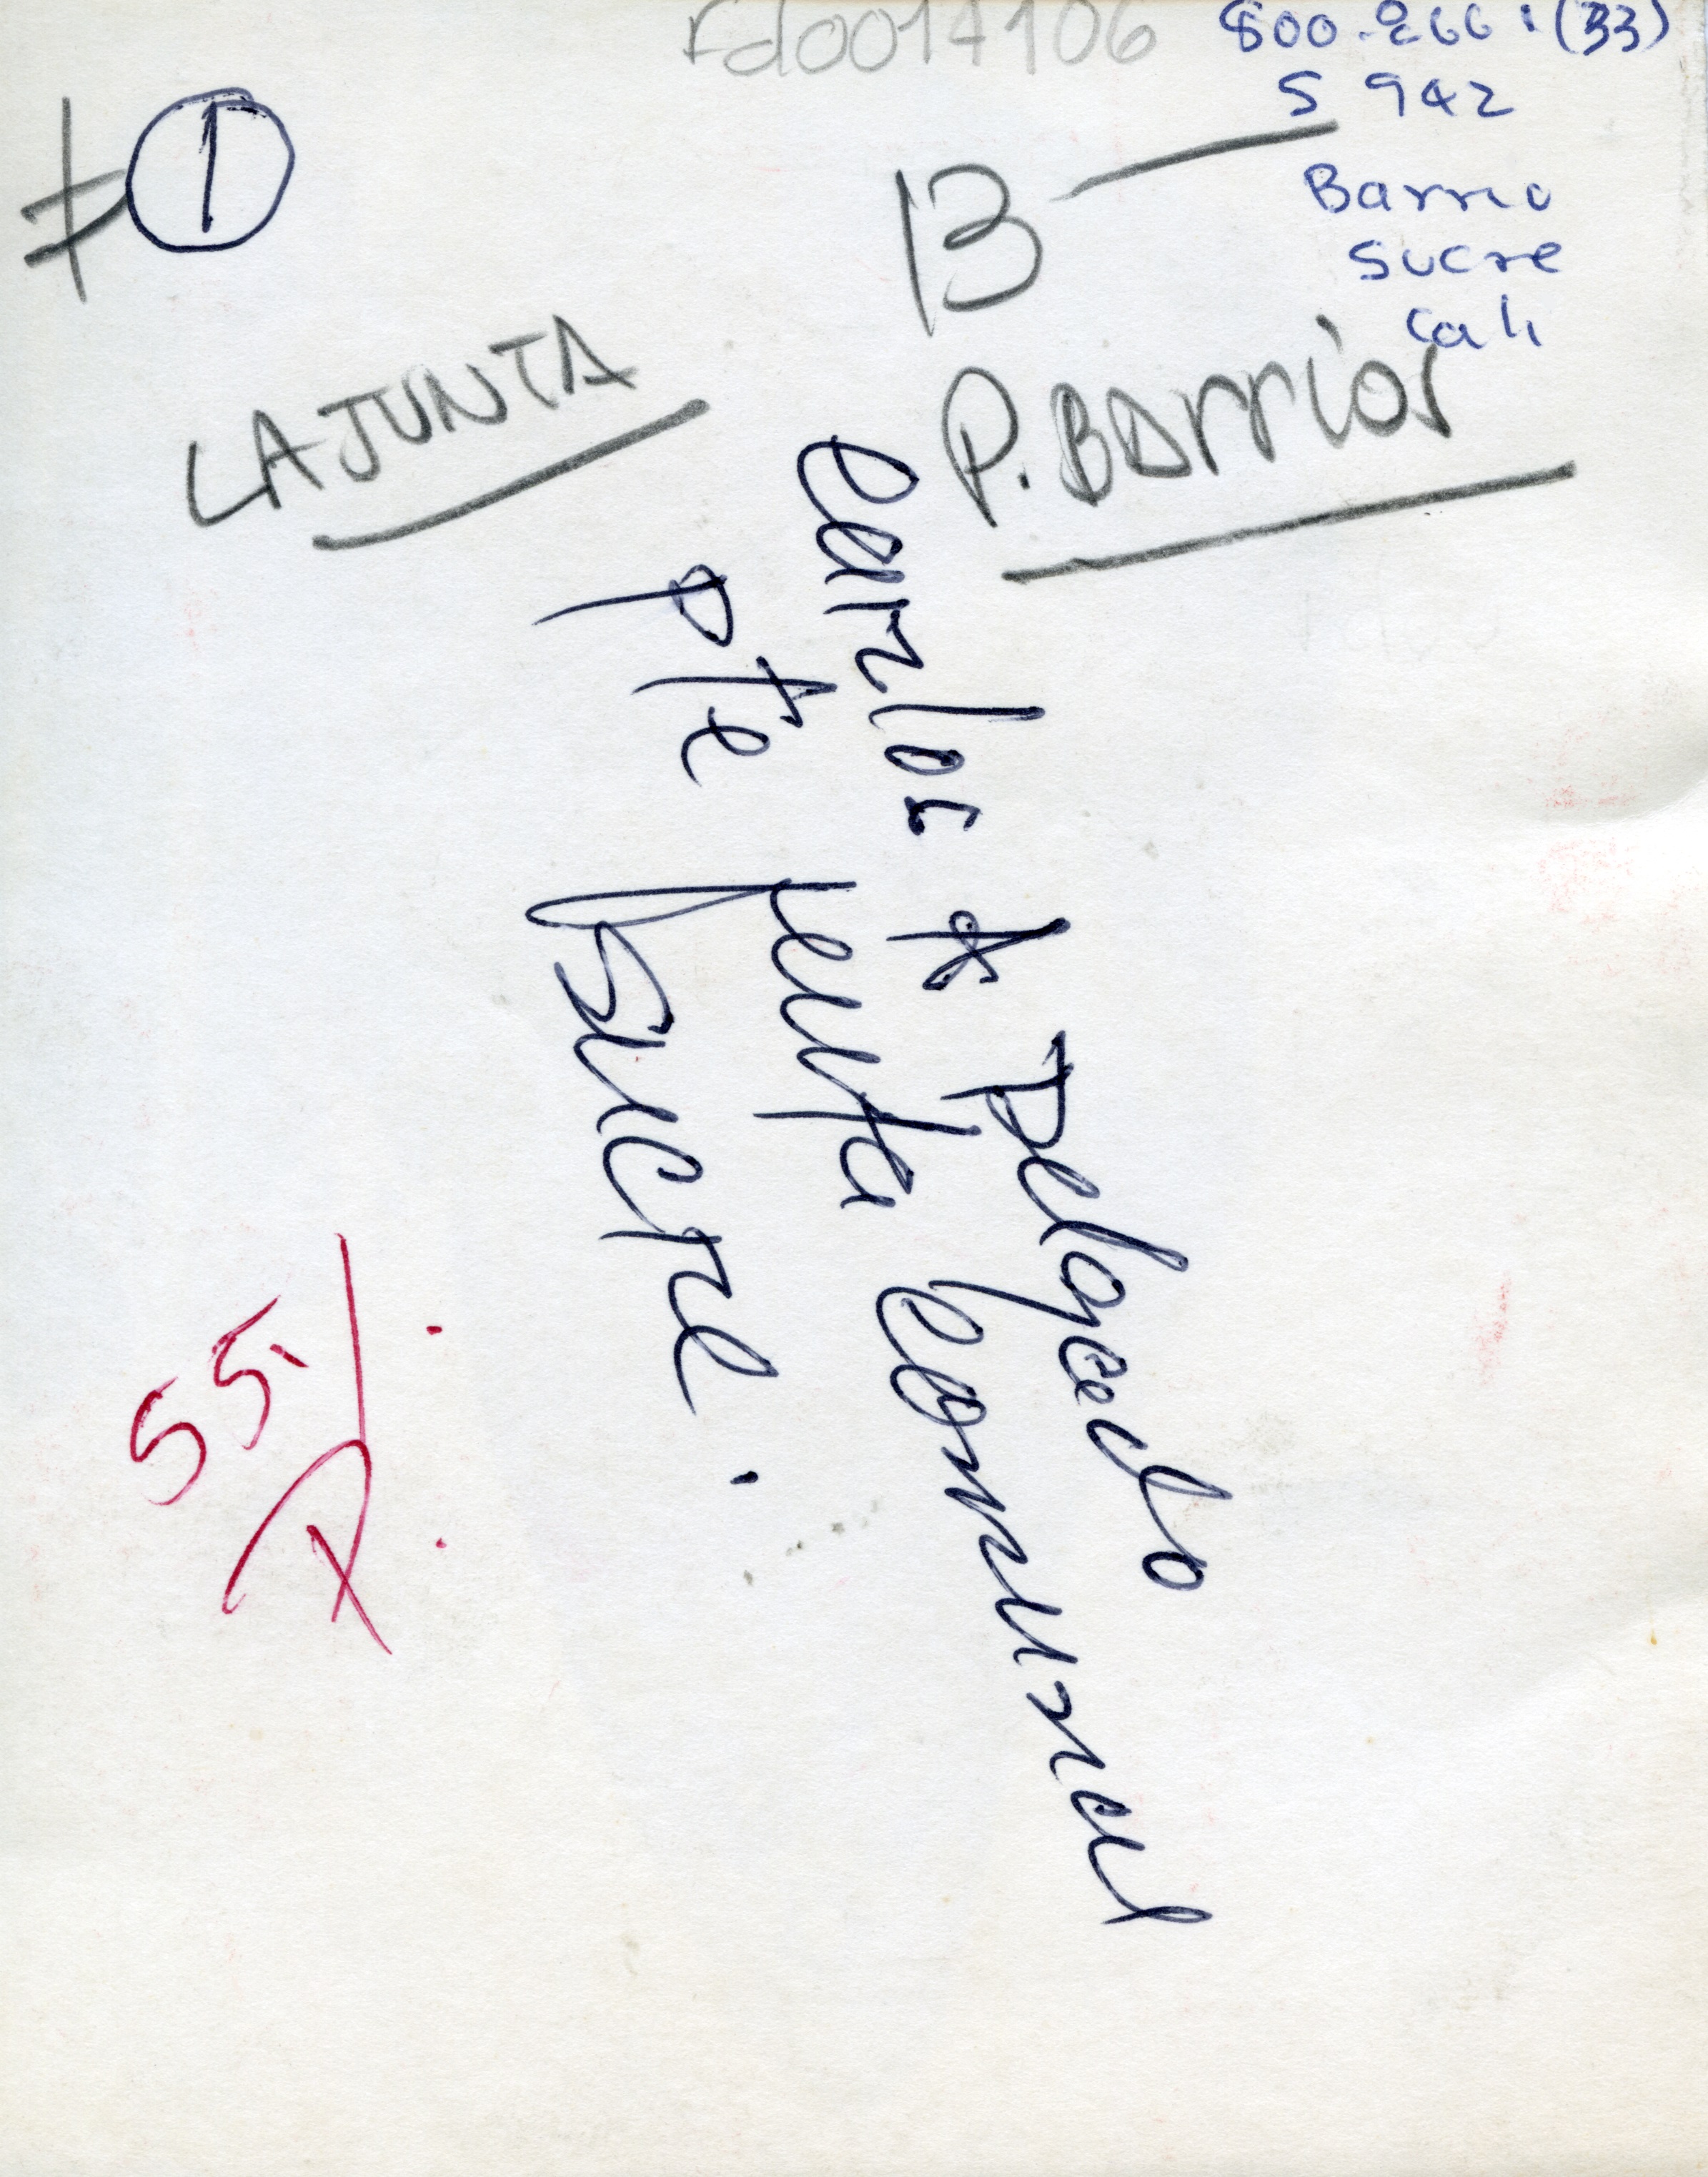 rd0017106
800.266:(33)
S 942
Barrio
Sucre
Cali
1
13
LA JUNTA
P. BARRIOS
Carlos A Delgado
Pte Junta Comunal
Sucre.
55